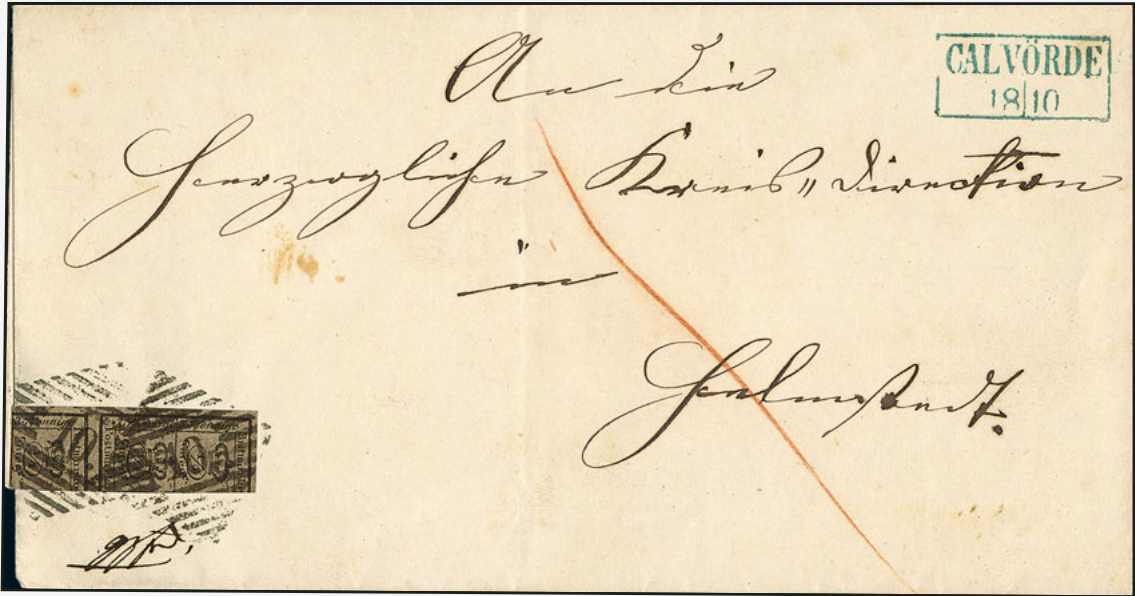 CALVÖRDE
18|10
An die
Herzogliche Kreis„ Direction
in
Helmstedt.
10